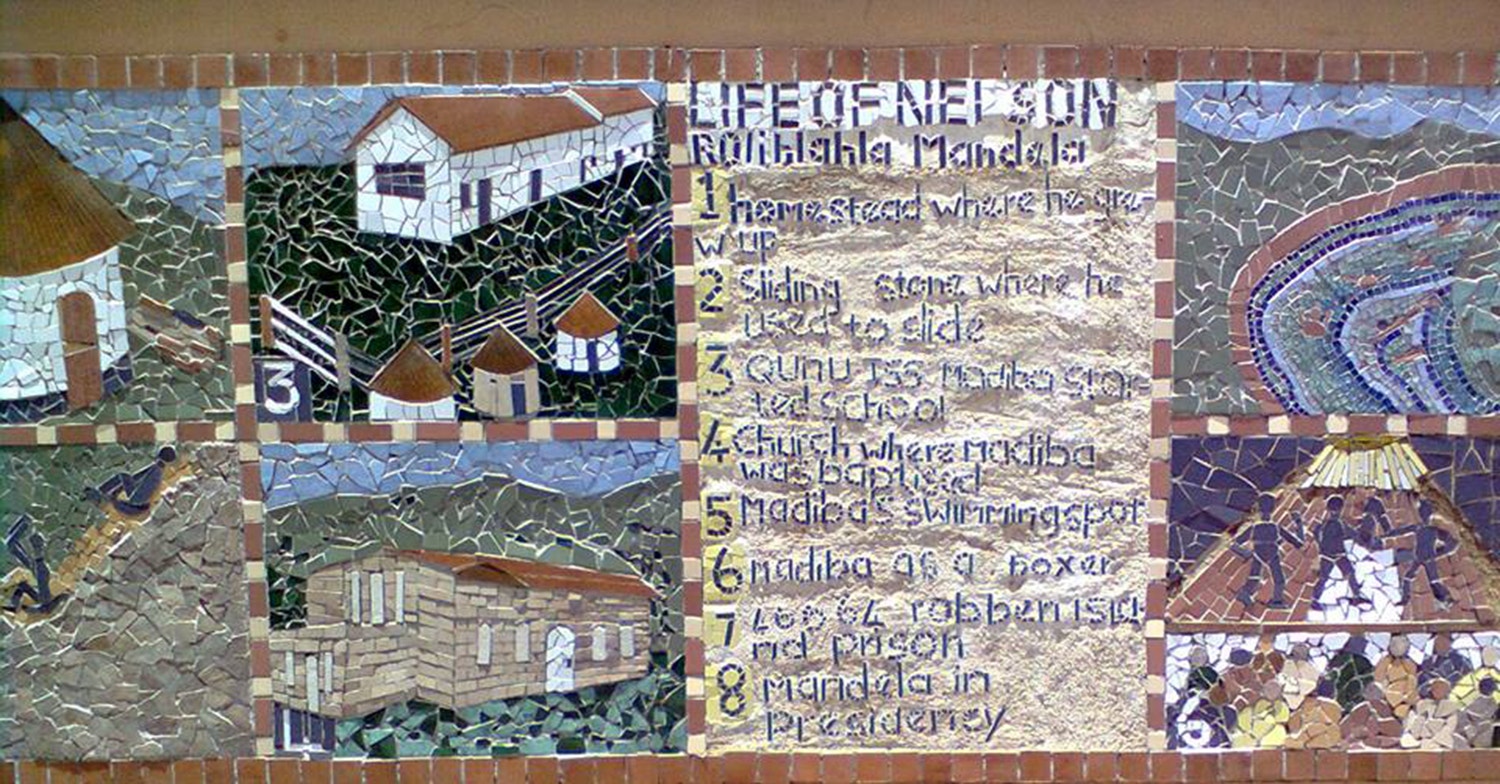 LIFE OF NELSON
Rolihlahla Mandela
1 homestead where he gre-
w up
2 Sliding stone where he
used to slide
3 QUNU JSS Madiba star
ted school
4 Church where Madiba
was baptised
5 Madiba's swimming spot
6 madiba as a boxer
7 46664 robben isla
nd prison
8 mandela in
presidency
3